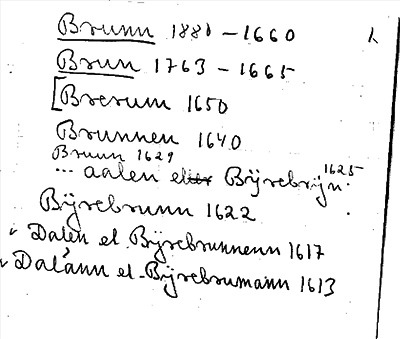 Brunn 1880 - 1660
Brun 1763 - 1665
[Brerum 1650
Brunnen 1640
Bruun 1629
... aalen eller Bÿrebrÿn. 1625
Bÿrebrunn 1622
Dalen el. Bÿrebrunnenn 1617
Dalánn el. Bÿrebrumann 1613